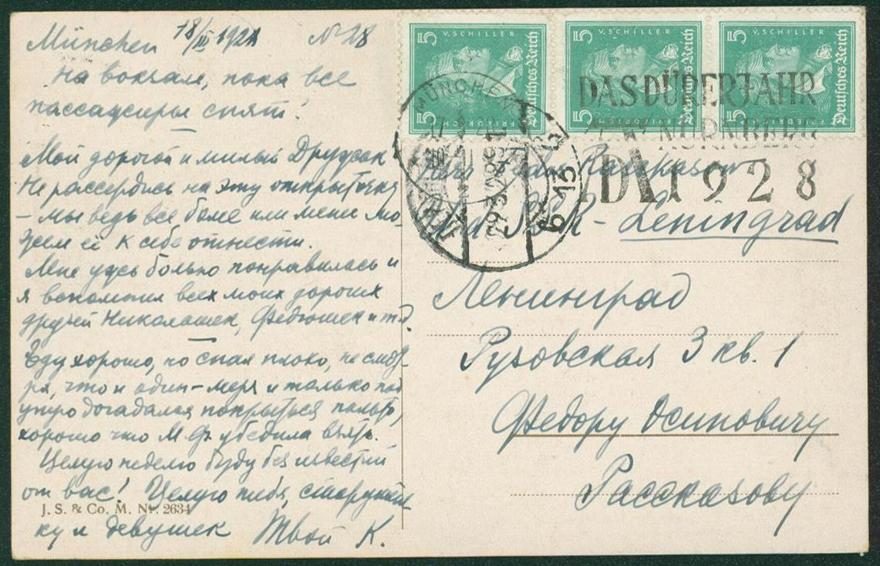 München 18/III 1928 № 28
На вокзале, пока все
пассажиры спят!
Мой дорогой и милый Дружок
Не рассердись на эту открытку
– мы ведь все более или менее мо-
жем её к себе отнести.
Мне ужас больно понравилась и
я вспомнил всех моих дорогих
друзей Николашек, Федюшек и т.д.
Еду хорошо, но спал плохо, не смот-
ря, что и один – мерз и только под
утро догадался покрыться пальто,
хорошо что М.Ф. убедила взять.
Целую неделю буду без известий
от вас! Целую тебя, старушен-
ку и девушек Твой К.
J. S. & Co. M. Nr. 2634
5 V. SCHILLER Deutsches Reich
5 V. SCHILLER Deutsches Reich
5 V. SCHILLER FRIEDRICH Deutsches Reich
MÜNCHEN
DAS DÜRERJAHR
NÜRNBERG
1928
Leningrad
Ленинград
Рузовская 3 кв. 1
Федору Осиповичу
Рассказову